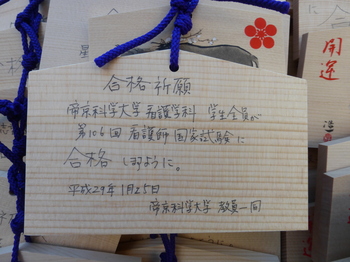 合格祈願
帝京科学大学 看護学科 学生全員が
第106回 看護師 国家試験に
合格 しますように。
平成29年1月25日
帝京科学大学 教員一同
開運